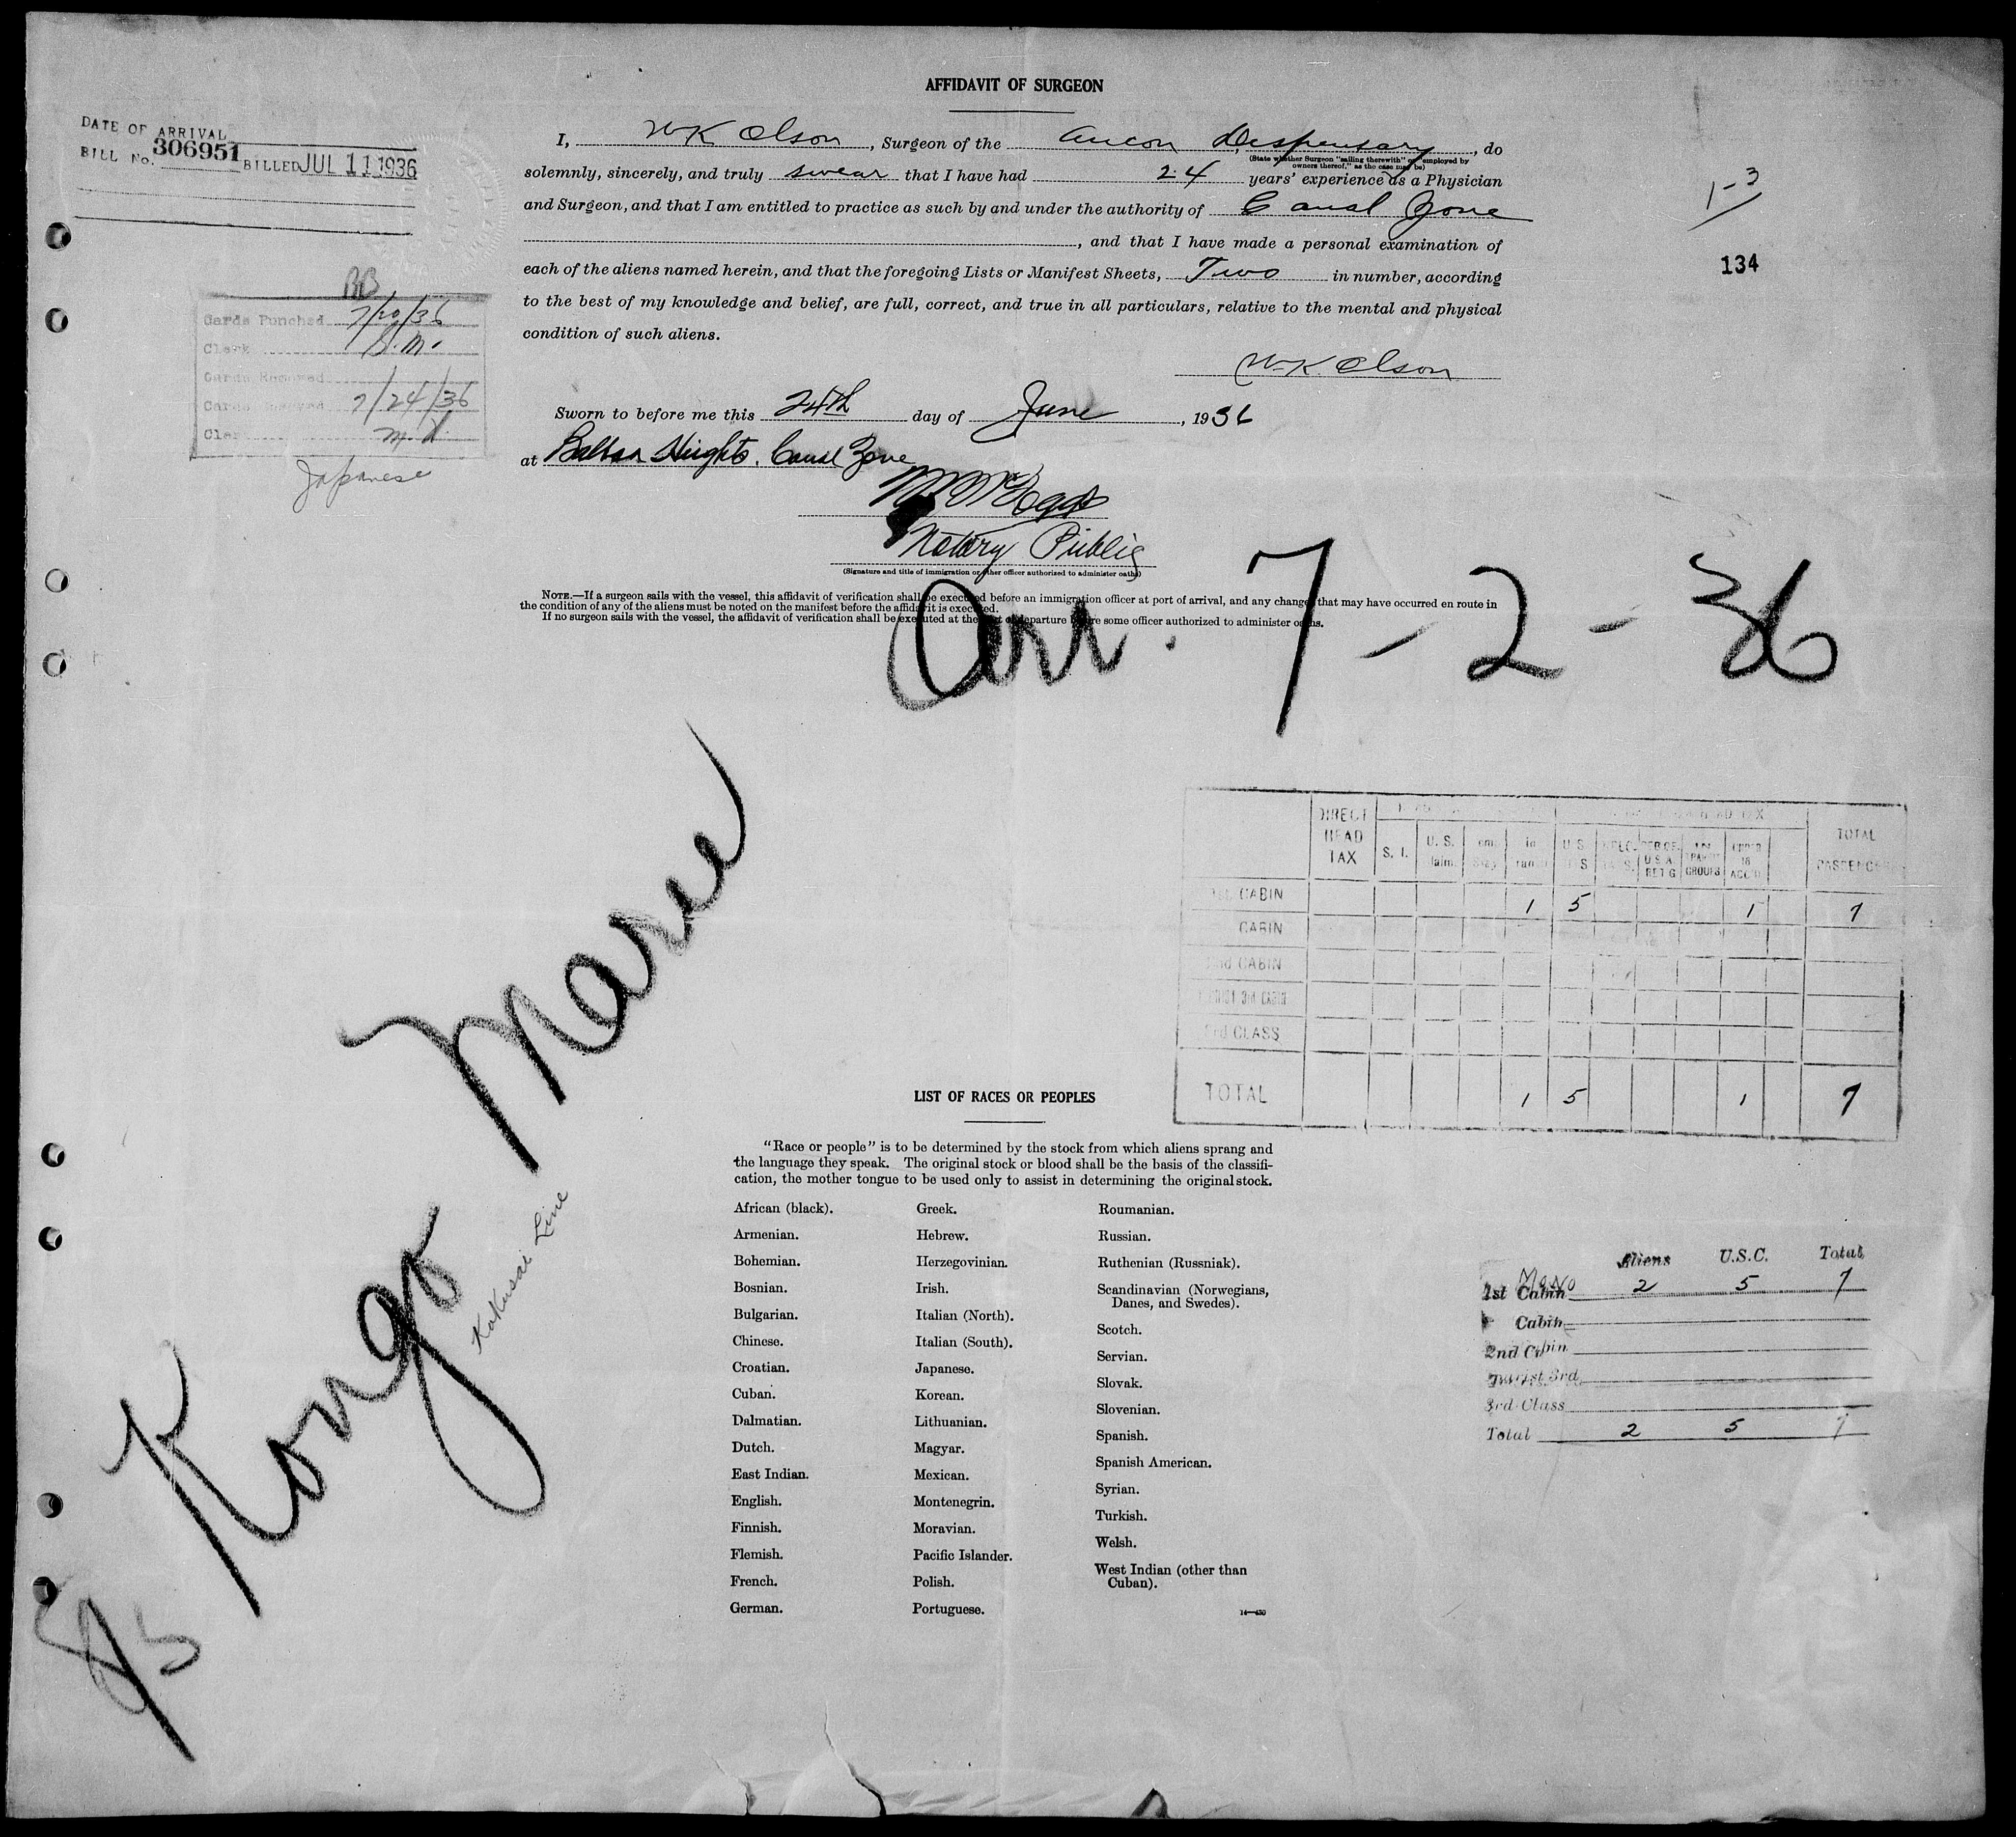 AFFIDAVIT OF SURGEON
DATE OF ARRIVAL
BILL No. 306951 BILLED JUL 11 1936
I, W K Olson, Surgeon of the Ancon Dispensary, do
(State whether Surgeon "sailing therewith" or "employed by
owners thereof," as the case may be)
solemnly, sincerely, and truly swear that I have had 24 years' experience as a Physician
and Surgeon, and that I am entitled to practice as such by and under the authority of Canal Zone
, and that I have made a personal examination of
each of the aliens named herein, and that the foregoing Lists or Manifest Sheets, Two in number, according
to the best of my knowledge and belief, are full, correct, and true in all particulars, relative to the mental and physical
condition of such aliens.
W.K. Olson
Sworn to before me this 24th day of June, 1936
at Balboa Heights, Canal Zone
Notary Public
(Signature and title of immigration or other officer authorized to administer oaths)
NOTE.—If a surgeon sails with the vessel, this affidavit of verification shall be executed before an immigration officer at port of arrival, and any changes that may have occurred en route in
the condition of any of the aliens must be noted on the manifest before the affidavit is executed.
If no surgeon sails with the vessel, the affidavit of verification shall be executed at the port of departure before some officer authorized to administer oaths.
1-3
134
BB
Cards Punched 7/20/36
Clerk S.M.
Cards Removed
Cards 7/24/36
Clerk
Japanese
Arr. 7-2-36
Kongo Maru
Kokusai Line
DIRECT HEAD TAX
S. I.
U. S.
TOTAL
PASSENGERS
1st CABIN 1 5 1 7
CABIN
2nd CABIN
TOURIST 3rd CABIN
3rd CLASS
TOTAL 1 5 1 7
LIST OF RACES OR PEOPLES
"Race or people" is to be determined by the stock from which aliens sprang and
the language they speak. The original stock or blood shall be the basis of the classifi-
cation, the mother tongue to be used only to assist in determining the original stock.
African (black).
Armenian.
Bohemian.
Bosnian.
Bulgarian.
Chinese.
Croatian.
Cuban.
Dalmatian.
Dutch.
East Indian.
English.
Finnish.
Flemish.
French.
German.
Greek.
Hebrew.
Herzegovinian.
Irish.
Italian (North).
Italian (South).
Japanese.
Korean.
Lithuanian.
Magyar.
Mexican.
Montenegrin.
Moravian.
Pacific Islander.
Polish.
Portuguese.
Roumanian.
Russian.
Ruthenian (Russniak).
Scandinavian (Norwegians,
Danes, and Swedes).
Scotch.
Servian.
Slovak.
Slovenian.
Spanish.
Spanish American.
Syrian.
Turkish.
Welsh.
West Indian (other than
Cuban).
14—430
Aliens U.S.C. Total
1st Cabin 2 5 7
Cabin
2nd Cabin
Tourist 3rd
3rd Class
Total 2 5 7